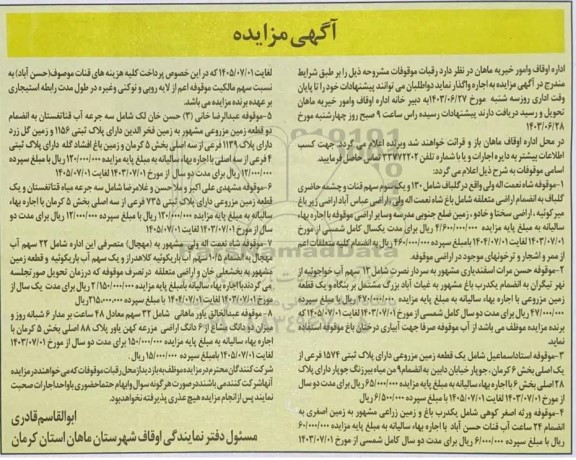 آگهی مزایده
اداره اوقاف وامور خیریه ماهان در نظر دارد رقبات موقوفات مشروحه ذیل را بر طبق شرایط
مندرج در آگهی مزایده به اجاره واگذار نماید دواطلبان می توانند پیشنهادات خود را تا پایان
وقت اداری روز سه شنبه مورخ ۱۴۰۳/۰۶/۲۷ به دبیر خانه اداره اوقاف و امور خیریه ماهان
تحویل و رسید دریافت دارند پیشنهادات رسیده راس ساعت ۹ صبح روز چهارشنبه مورخ
۱۴۰۳/۰۶/۲۸
در محل اداره اوقاف ماهان باز و قرائت خواهند شد وبرنده اعلام می گردد. جهت کسب
اطلاعات بیشتر به دایره اجارات و یا با شماره تلفن ۳۳۷۷۲۲۰۲ تماس حاصل فرمایید.
اسامی موقوفات به شرح ذیل اعلام می گردد:
۱-موقوفه شاه نعمت اله ولی واقع در گلباف شامل ۱۳۰ و یک سوم سهم قنات و چشمه حاضری
گلباف به انضمام اراضی متعلقه شامل باغ شاه نعمت اله ولی، اراضی عباس آباد اراضی زیر باغ
میر کوئیه ، اراضی سختا و خادو ، زمین ضلع جنوبی مدرسه وسایر اراضی موقوفه با اجاره بهاء
سالیانه به مبلغ پایه مزایده ۴/۶۰۰/۰۰۰/۰۰۰ ریال برای مدت یکسال کامل شمسی از مورخ
۱۴۰۳/۰۷/۰۱ لغایت ۱۴۰۴/۰۷/۰۱ بامبلغ سپرده ۴۶۰/۰۰۰/۰۰۰ ریال به انضمام کلیه متعلقات اعم
از ممر و اشجار و ترخونهای موجود در اراضی موقوفه.
۲-موقوفه حسن مرات اسفندیاری مشهور به سردار نصرت شامل ۱۲ سهم آب خواجوئیه از
نهر تیگران به انضمام یکدرب باغ مشهور به غیاث آباد بزرگ مشتمل بر بنگاه و یک قطعه
زمین مزروعی با اجاره بهاء سالیانه به مبلغ پایه مزایده ۴۷۰/۰۰۰/۰۰۰ ریال با مبلغ سپرده
۴۷/۰۰۰/۰۰۰ ریال برای مدت دو سال کامل شمسی از مورخ ۱۴۰۳/۰۷/۰۱ لغایت ۱۴۰۵/۰۷/۰۱ که
برنده مزایده موظف می باشد از آب موقوفه صرفاً جهت آبیاری درختان باغ موقوفه استفاده
نماید
۳-موقوفه استاداسماعیل شامل یک قطعه زمین مزروعی دارای پلاک ثبتی ۱۵۷۴ فرعی از
یک اصلی بخش ۶ کرمان ، جوپار خیابان دابین به انضمام ۹ من میاه بیزنگ جوپار دارای پلاک
۲۸ اصلی بخش ۶ با اجاره بهاء سالیانه به مبلغ پایه مزایده ۶۵/۰۰۰/۰۰۰ ریال برای مدت دو سال
از مورخ ۱۴۰۳/۰۷/۰۱ لغایت ۱۴۰۵/۰۷/۰۱ با مبلغ سپرده ۶/۵۰۰/۰۰۰ ریال
۴-موقوفه ورثه اصغر کوهی شامل یکدرب باغ و زمین زراعی مشهور به زمین اصغری به
انضمام ۲۴ ساعت آب قنات حسن آباد با اجاره بهاء سالیانه به مبلغ پایه مزایده ۶۰/۰۰۰/۰۰۰
ریال با مبلغ سپرده ۶/۰۰۰/۰۰۰ ریال برای مدت دو سال کامل شمسی از مورخ ۱۴۰۳/۰۷/۰۱
لغایت ۱۴۰۵/۰۷/۰۱ که در این خصوص پرداخت کلیه هزینه های قنات موصوف(حسن آباد) به
نسبت سهم مالکیت موقوفه اعم از لایه روبی و نوکنی وغیره در طول مدت رابطه استیجاری
بر عهده برنده مزایده می باشد.
۵-موقوفه عبدالرضا خانی (۳) حسن خان لک شامل سه جرعه آب قناتغستان به انضمام
دو قطعه زمین مزروعی مشهور به زمین فخر الدین دارای پلاک ثبتی ۱۱۵۶ و زمین گل زرد
دارای پلاک ۱۱۳۹ فرعی از سه اصلی بخش ۵ کرمان و زمین باغ افشاد گله دارای پلاک ثبتی
۴ فرعی از سه اصلی با اجاره بهاء سالیانه به مبلغ پایه مزایده ۱۲۰/۰۰۰/۰۰۰ ریال با مبلغ سپرده
۱۲/۰۰۰/۰۰۰ ریال برای مدت دو سال از مورخ ۱۴۰۳/۰۷/۰۱ لغایت ۱۴۰۵/۰۷/۰۱
۶-موقوفه مشهدی علی اکبر و ملا حسن و غلامرضا شامل سه جرعه میاه قناتغستان و یک
قطعه زمین مزروعی دارای پلاک ثبتی ۷۳۵ فرعی از سه اصلی بخش ۵ کرمان با اجاره بهاء
سالیانه به مبلغ پایه مزایده ۱۲۰/۰۰۰/۰۰۰ ریال با مبلغ سپرده ۱۲/۰۰۰/۰۰۰ ریال برای مدت دو
سال از مورخ ۱۴۰۳/۰۷/۰۱ لغایت ۱۴۰۵/۰۷/۰۱
۷-موقوفه شاه نعمت اله ولی مشهور به (مهچال) متصرفی این اداره شامل ۲۲ سهم آب
مهچال به انضمام ۱۰/۵ سهم آب باریکوئیه کلاهدراز و یک سهم آب باریکوئیه و قطعه زمین
مشهور به بخشعلی خان و اراضی متعلقه در تصرف موقوفه که در زمان تحویل صورتجلسه
می گردد با اجاره بهاء سالیانه به مبلغ پایه مزایده ۲/۱۵۰/۰۰۰/۰۰۰ ریال برای مدت یک سال از
مورخ ۱۴۰۳/۰۷/۰۱ لغایت ۱۴۰۴/۰۷/۰۱ با مبلغ سپرده ۲۱۵/۰۰۰/۰۰۰ ریال
۸-موقوفه عبدالخالق باور ماهانی شامل ۳۲ سهم معادل ۴۸ ساعت بر مدار ۶ شبانه روز و
میزان دو دانگ مشاع از ۶ دانگ اراضی مزرعه کهن باور پلاک ۸۸ اصلی بخش ۵ کرمان با
اجاره بهاء سالیانه به مبلغ پایه مزایده ۱۵۰/۰۰۰/۰۰۰ ریال برای مدت دو سال از مورخ ۱۴۰۳/۰۷/۰۱
لغایت ۱۴۰۵/۰۷/۰۱ بامبلغ سپرده ۱۵/۰۰۰/۰۰۰ ریال.
شرکت کنندگان محترم در مزایده موظف به بازدید از محل رقبات موقوفات که می خواهند در مزایده
آنها شرکت کنند می باشند در صورت هر گونه سوال وابهام حتما حضوری با واحد اجارات صحبت
نمایند پس از انجام مزایده هیچ عذری پذیرفته نخواهد بود.
ابوالقاسم قادری
مسئول دفتر نمایندگی اوقاف شهرستان ماهان استان کرمان